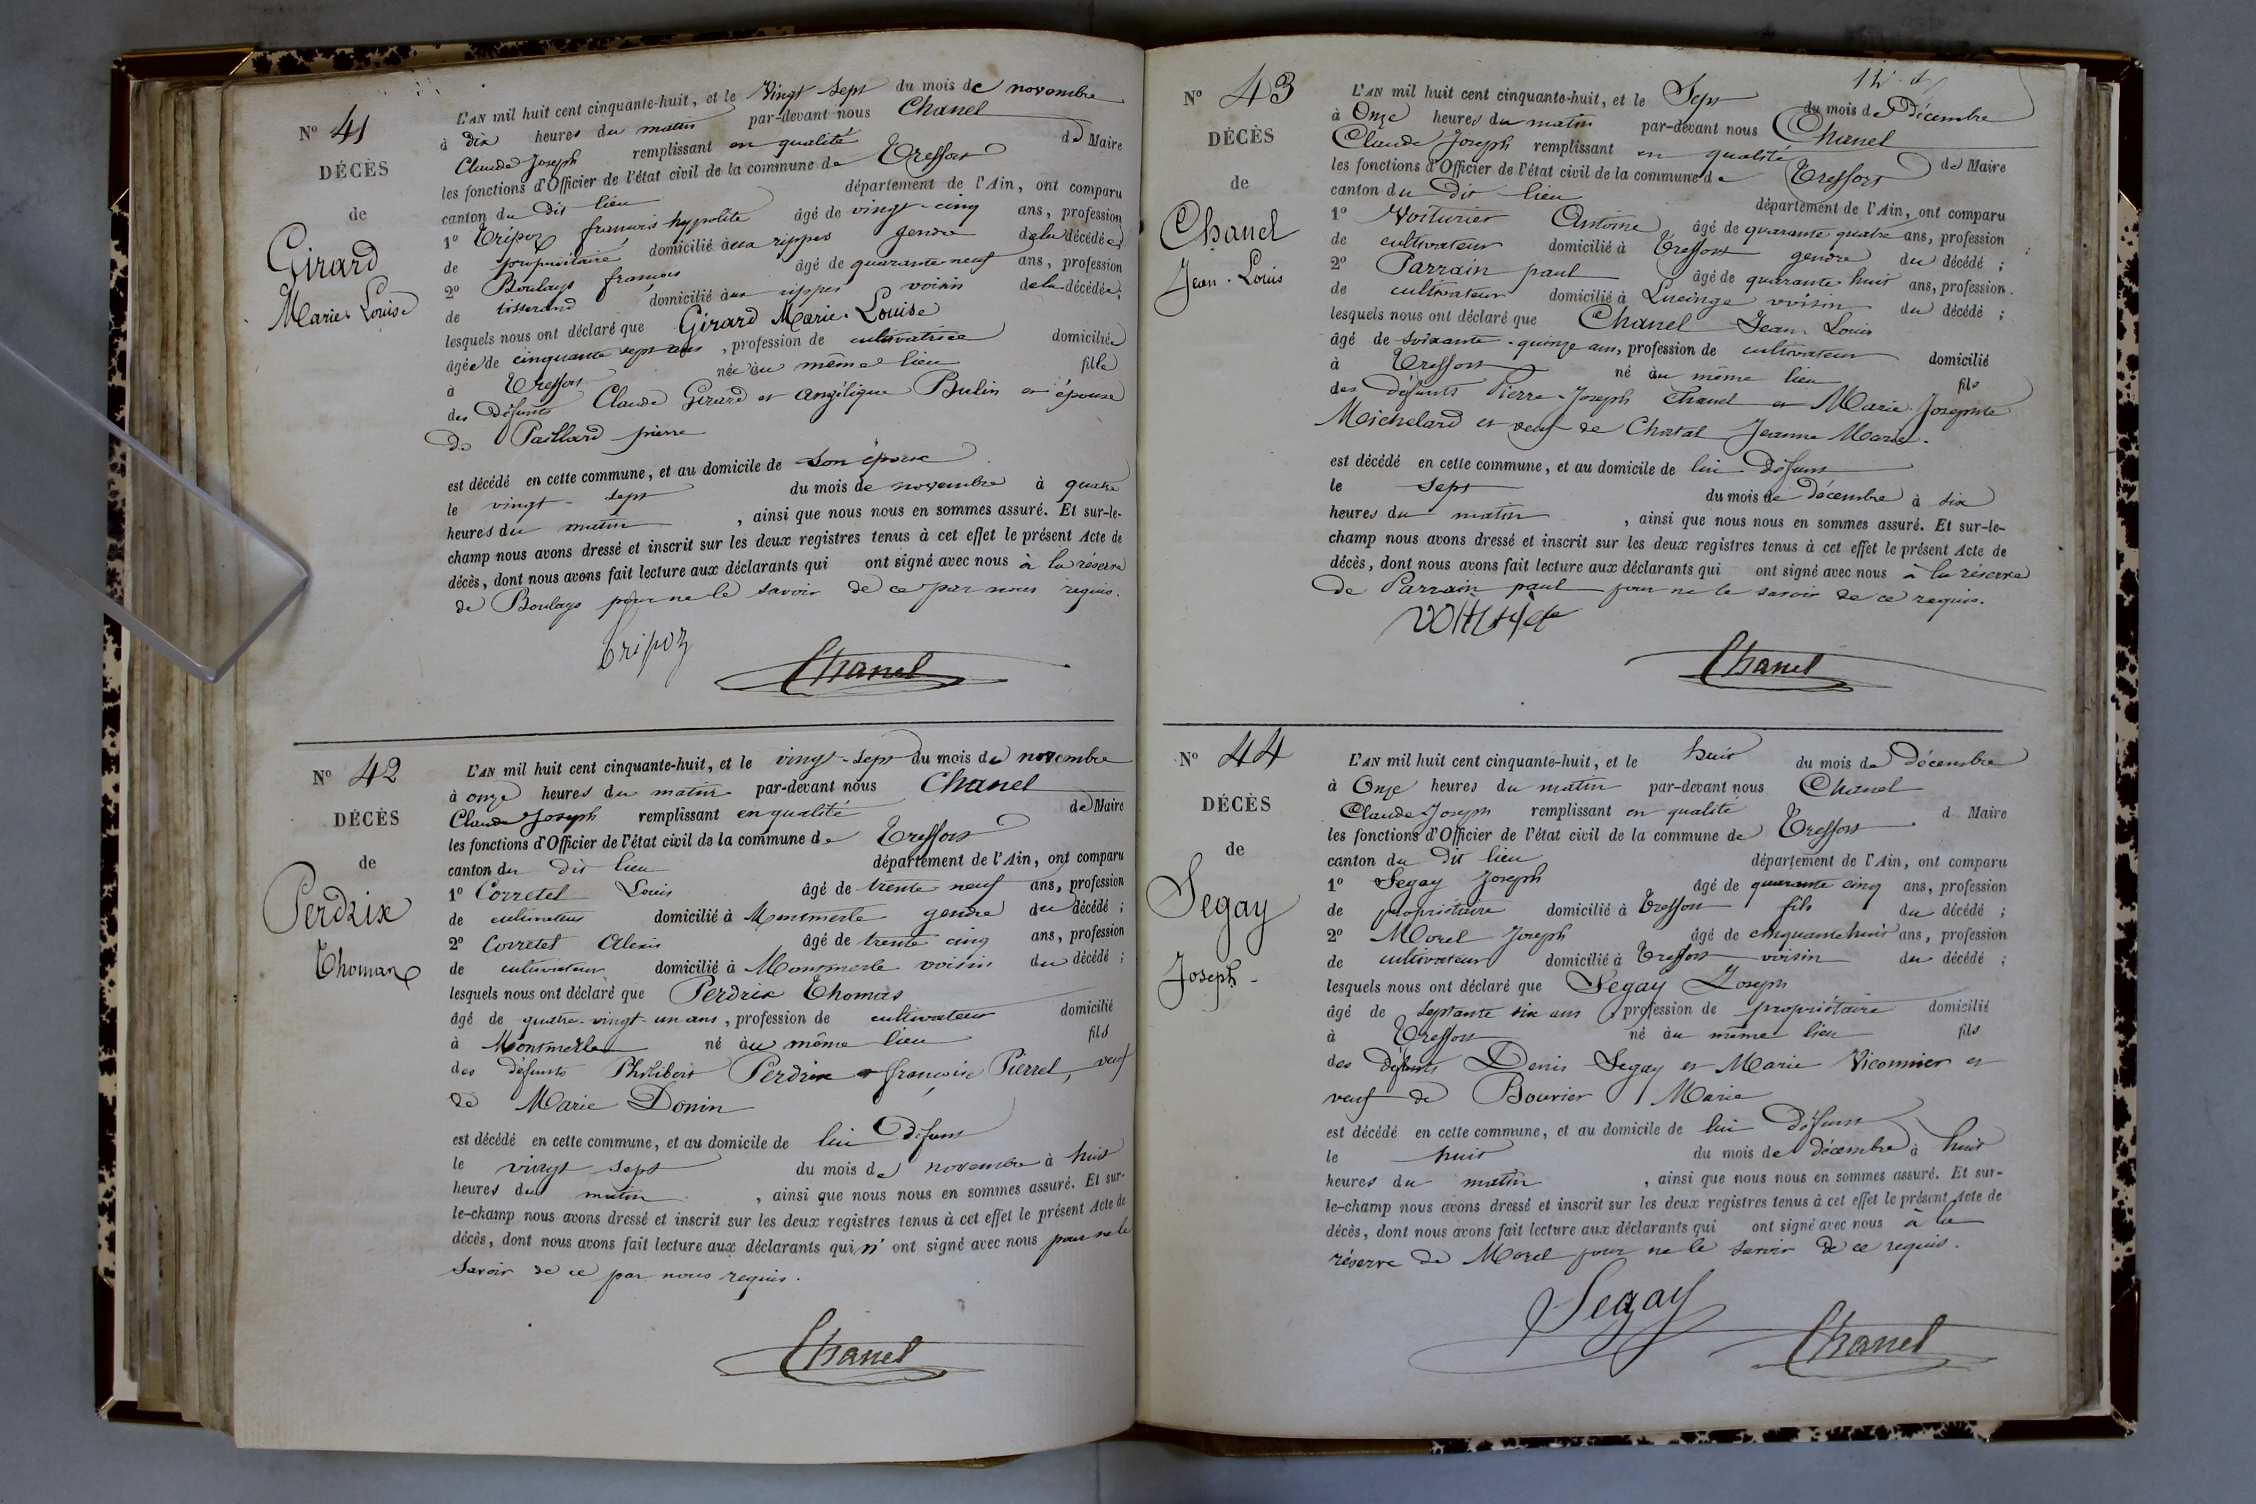 N° 41
DÉCÈS
de
Girard
Marie-Louise
L'AN mil huit cent cinquante-huit, et le Vingt-sept du mois de novembre
à dix heures du matin par-devant nous Chanel
Claude Joseph remplissant en qualité de Maire
les fonctions d'Officier de l'état civil de la commune de Treffort
canton du dit lieu département de l'Ain, ont comparu
1° Tripoz françois hypolite âgé de vingt-cinq ans, profession
de propriétaire domicilié aux rippes gendre de la décédée
2° Boulays françois âgé de quarante neuf ans, profession
de tisserand domicilié aux rippes voisin de la décédée;
lesquels nous ont déclaré que Girard Marie-Louise
âgée de cinquante sept ans, profession de cultivatrice domiciliée
à Treffort née au même lieu fille
des défunts Claude Girard et angélique Bulin et épouse
de Paillard pierre
est décédé en cette commune, et au domicile de son époux
le vingt-sept du mois de novembre à quatre
heures du matin, ainsi que nous nous en sommes assuré. Et sur-le-
champ nous avons dressé et inscrit sur les deux registres tenus à cet effet le présent Acte de
décès, dont nous avons fait lecture aux déclarants qui ont signé avec nous à la réserve
de Boulays pour ne le savoir de ce par nous requis.
Tripoz
Chanel
N° 42
DÉCÈS
de
Perdrix
Thomas
L'AN mil huit cent cinquante-huit, et le vingt-sept du mois de novembre
à onze heures du matin par-devant nous Chanel
Claude Joseph remplissant en qualité de Maire
les fonctions d'Officier de l'état civil de la commune de Treffort
canton du dit lieu département de l'Ain, ont comparu
1° Corretel Louis âgé de trente neuf ans, profession
de cultivateur domicilié à Montmerle gendre du décédé;
2° Corretel Alexis âgé de trente cinq ans, profession
de cultivateur domicilié à Montmerle voisin du décédé;
lesquels nous ont déclaré que Perdrix Thomas
âgé de quatre-vingt-un ans, profession de cultivateur domicilié
à Montmerle né au même lieu fils
des défunts Philibert Perdrix et françoise Pierrel, veuf
de Marie Donin
est décédé en cette commune, et au domicile de lui défunt
le vingt sept du mois de novembre à huit
heures du matin, ainsi que nous nous en sommes assuré. Et sur-
le-champ nous avons dressé et inscrit sur les deux registres tenus à cet effet le présent Acte de
décès, dont nous avons fait lecture aux déclarants qui n' ont signé avec nous pour ne le
savoir de ce par nous requis.
Chanel
N° 43
DÉCÈS
de
Chanel
Jean-Louis
L'AN mil huit cent cinquante-huit, et le Sept du mois de Décembre
à Onze heures du matin par-devant nous Chanel
Claude Joseph remplissant en qualité de Maire
les fonctions d'Officier de l'état civil de la commune de Treffort
canton du dit lieu département de l'Ain, ont comparu
1° Voiturier Antoine âgé de quarante quatre ans, profession
de cultivateur domicilié à Treffort gendre du décédé;
2° Parrain paul âgé de quarante huit ans, profession
de cultivateur domicilié à Lucinge voisin du décédé;
lesquels nous ont déclaré que Chanel Jean-Louis
âgé de soixante-quinze ans, profession de cultivateur domicilié
à Treffort né au même lieu fils
des défunts Pierre-Joseph Chanel et Marie-Josephte
Michelard et veuf de Chatal Jeanne Marie.
est décédé en cette commune, et au domicile de lui défunt
le Sept du mois de décembre à six
heures du matin, ainsi que nous nous en sommes assuré. Et sur-le-
champ nous avons dressé et inscrit sur les deux registres tenus à cet effet le présent Acte de
décès, dont nous avons fait lecture aux déclarants qui ont signé avec nous à la réserve
de Parrain paul pour ne le savoir de ce requis.
Chanel
N° 44
DÉCÈS
de
Segay
Joseph-
L'AN mil huit cent cinquante-huit, et le huit du mois de Décembre
à Onze heures du matin par-devant nous Chanel
Claude Joseph remplissant en qualité d Maire
les fonctions d'Officier de l'état civil de la commune de Treffort
canton du dit lieu département de l'Ain, ont comparu
1° Segay Joseph âgé de quarante cinq ans, profession
de propriétaire domicilié à Treffort fils du décédé;
2° Morel Joseph âgé de cinquante huit ans, profession
de cultivateur domicilié à Treffort voisin du décédé;
lesquels nous ont déclaré que Segay Joseph
âgé de septante six ans, profession de propriétaire domicilié
à Treffort né au même lieu fils
des défunts Denis Segay et Marie Viconnier et
veuf de Bouvier Marie
est décédé en cette commune, et au domicile de lui défunt
le huit du mois de décembre à huit
heures du matin, ainsi que nous nous en sommes assuré. Et sur-
le-champ nous avons dressé et inscrit sur les deux registres tenus à cet effet le présent Acte de
décès, dont nous avons fait lecture aux déclarants qui ont signé avec nous à la
réserve de Morel pour ne le savoir de ce requis.
Segay
Chanel